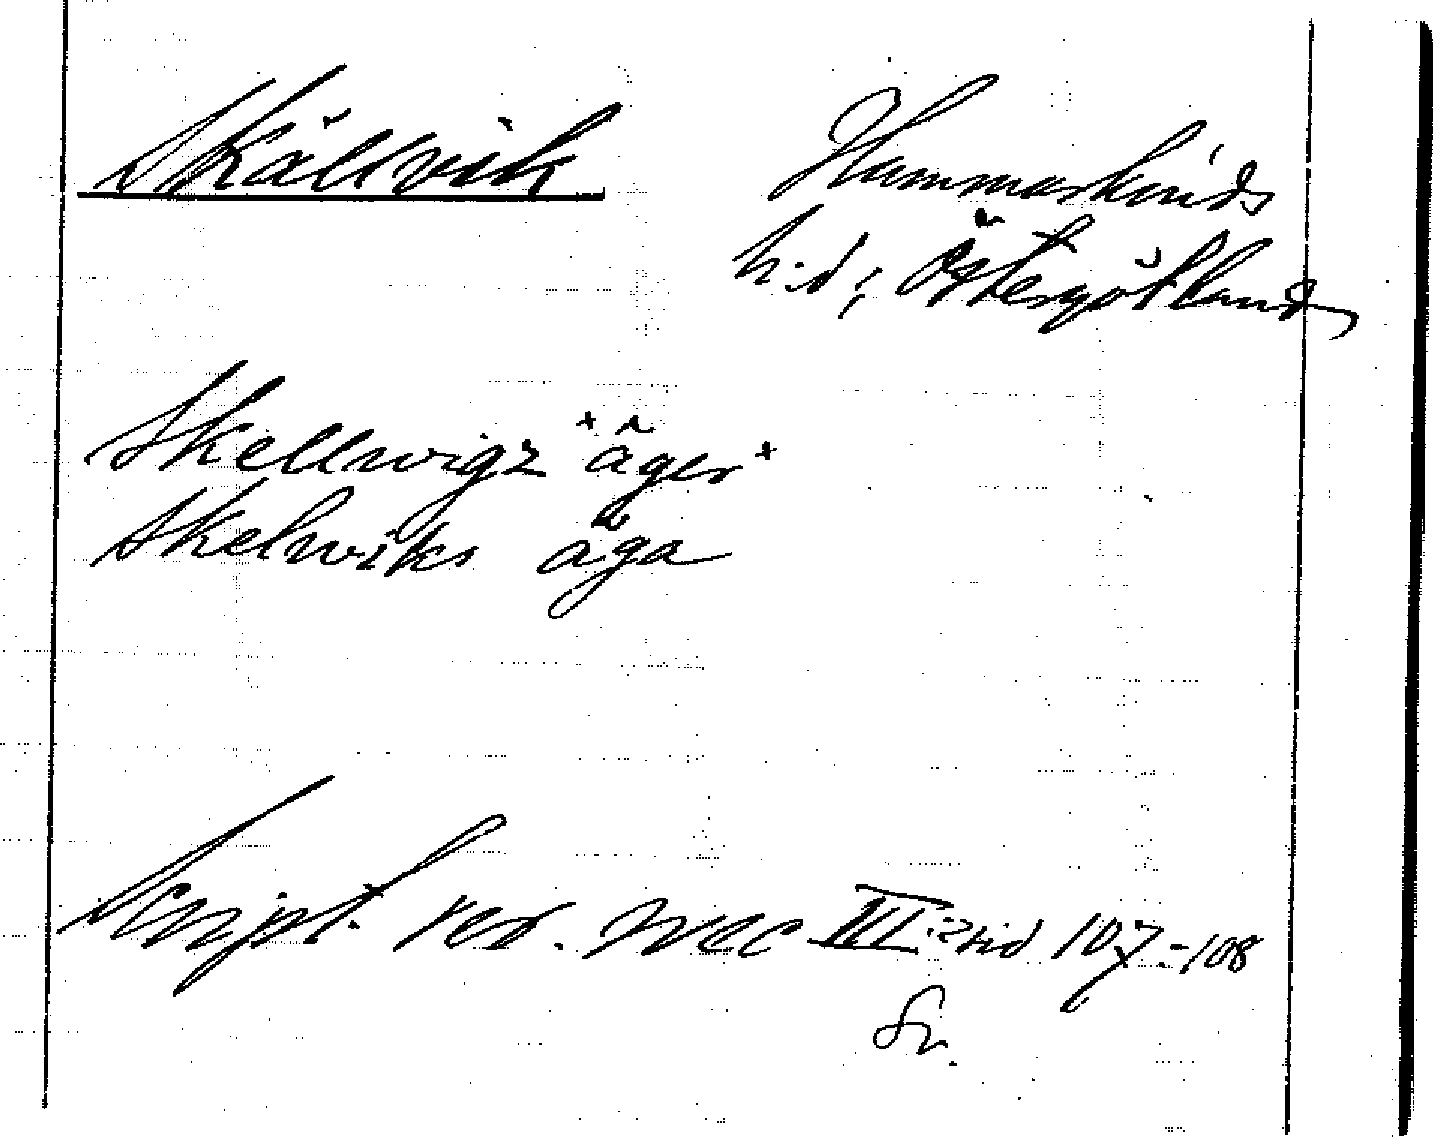 Skällvik
Hammarkinds
h:d, Östergötland
Skellwigz +äger+
Skelwiks äga
Script. rer. svec III:2 sid 107-108